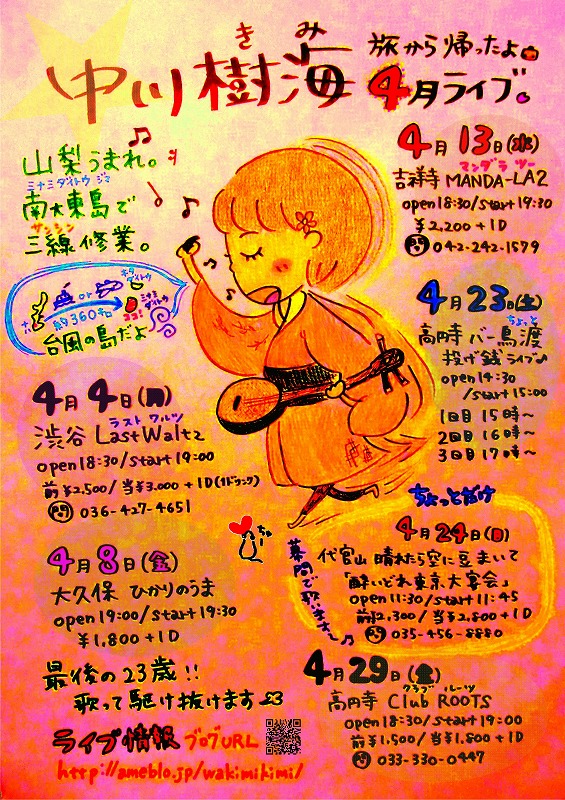 きみ
中川樹海
旅から帰ったよ
4月ライブ。
山梨うまれ。
ミナミダイトウジマ
南大東島で
サンシン
三線修業。
or
キタダイトウ
ミナミダイトウ
ココ!
約360キロ
台風の島だよ
4月13日(水)
マンダラ ツー
吉祥寺 MANDA-LA2
open18:30/start19:30
¥2,200+1D
問 042-242-1579
4月23日(土)
ちょっと
高円寺 バー鳥渡
投げ銭ライブ♪
open14:30
/start15:00
1回目 15時~
2回目 16時~
3回目 17時~
4月4日(月)
ラスト ワルツ
渋谷 LastWaltz
open18:30/start19:00
前¥2,500/当¥3,000+1D(1ドリンク)
問 036-427-4651
4月8日(金)
大久保 ひかりのうま
open19:00/start19:30
¥1,800+1D
ちょっとだけ
4月24日(日)
代官山 晴れたら空に豆まいて
「酔いどれ東京大宴会」
open11:30/start11:45
前¥2,300/当¥2,800+1D
問 035-456-8880
幕間で歌います~♪
4月29日(金)
クラブ ルーツ
高円寺 Club ROOTS
open18:30/start19:00
前¥1,500/当¥1,800+1D
問 033-330-0447
最後の23歳!!
歌って駆け抜けます
ライブ情報 ブログURL
http://ameblo.jp/wakimikimi/